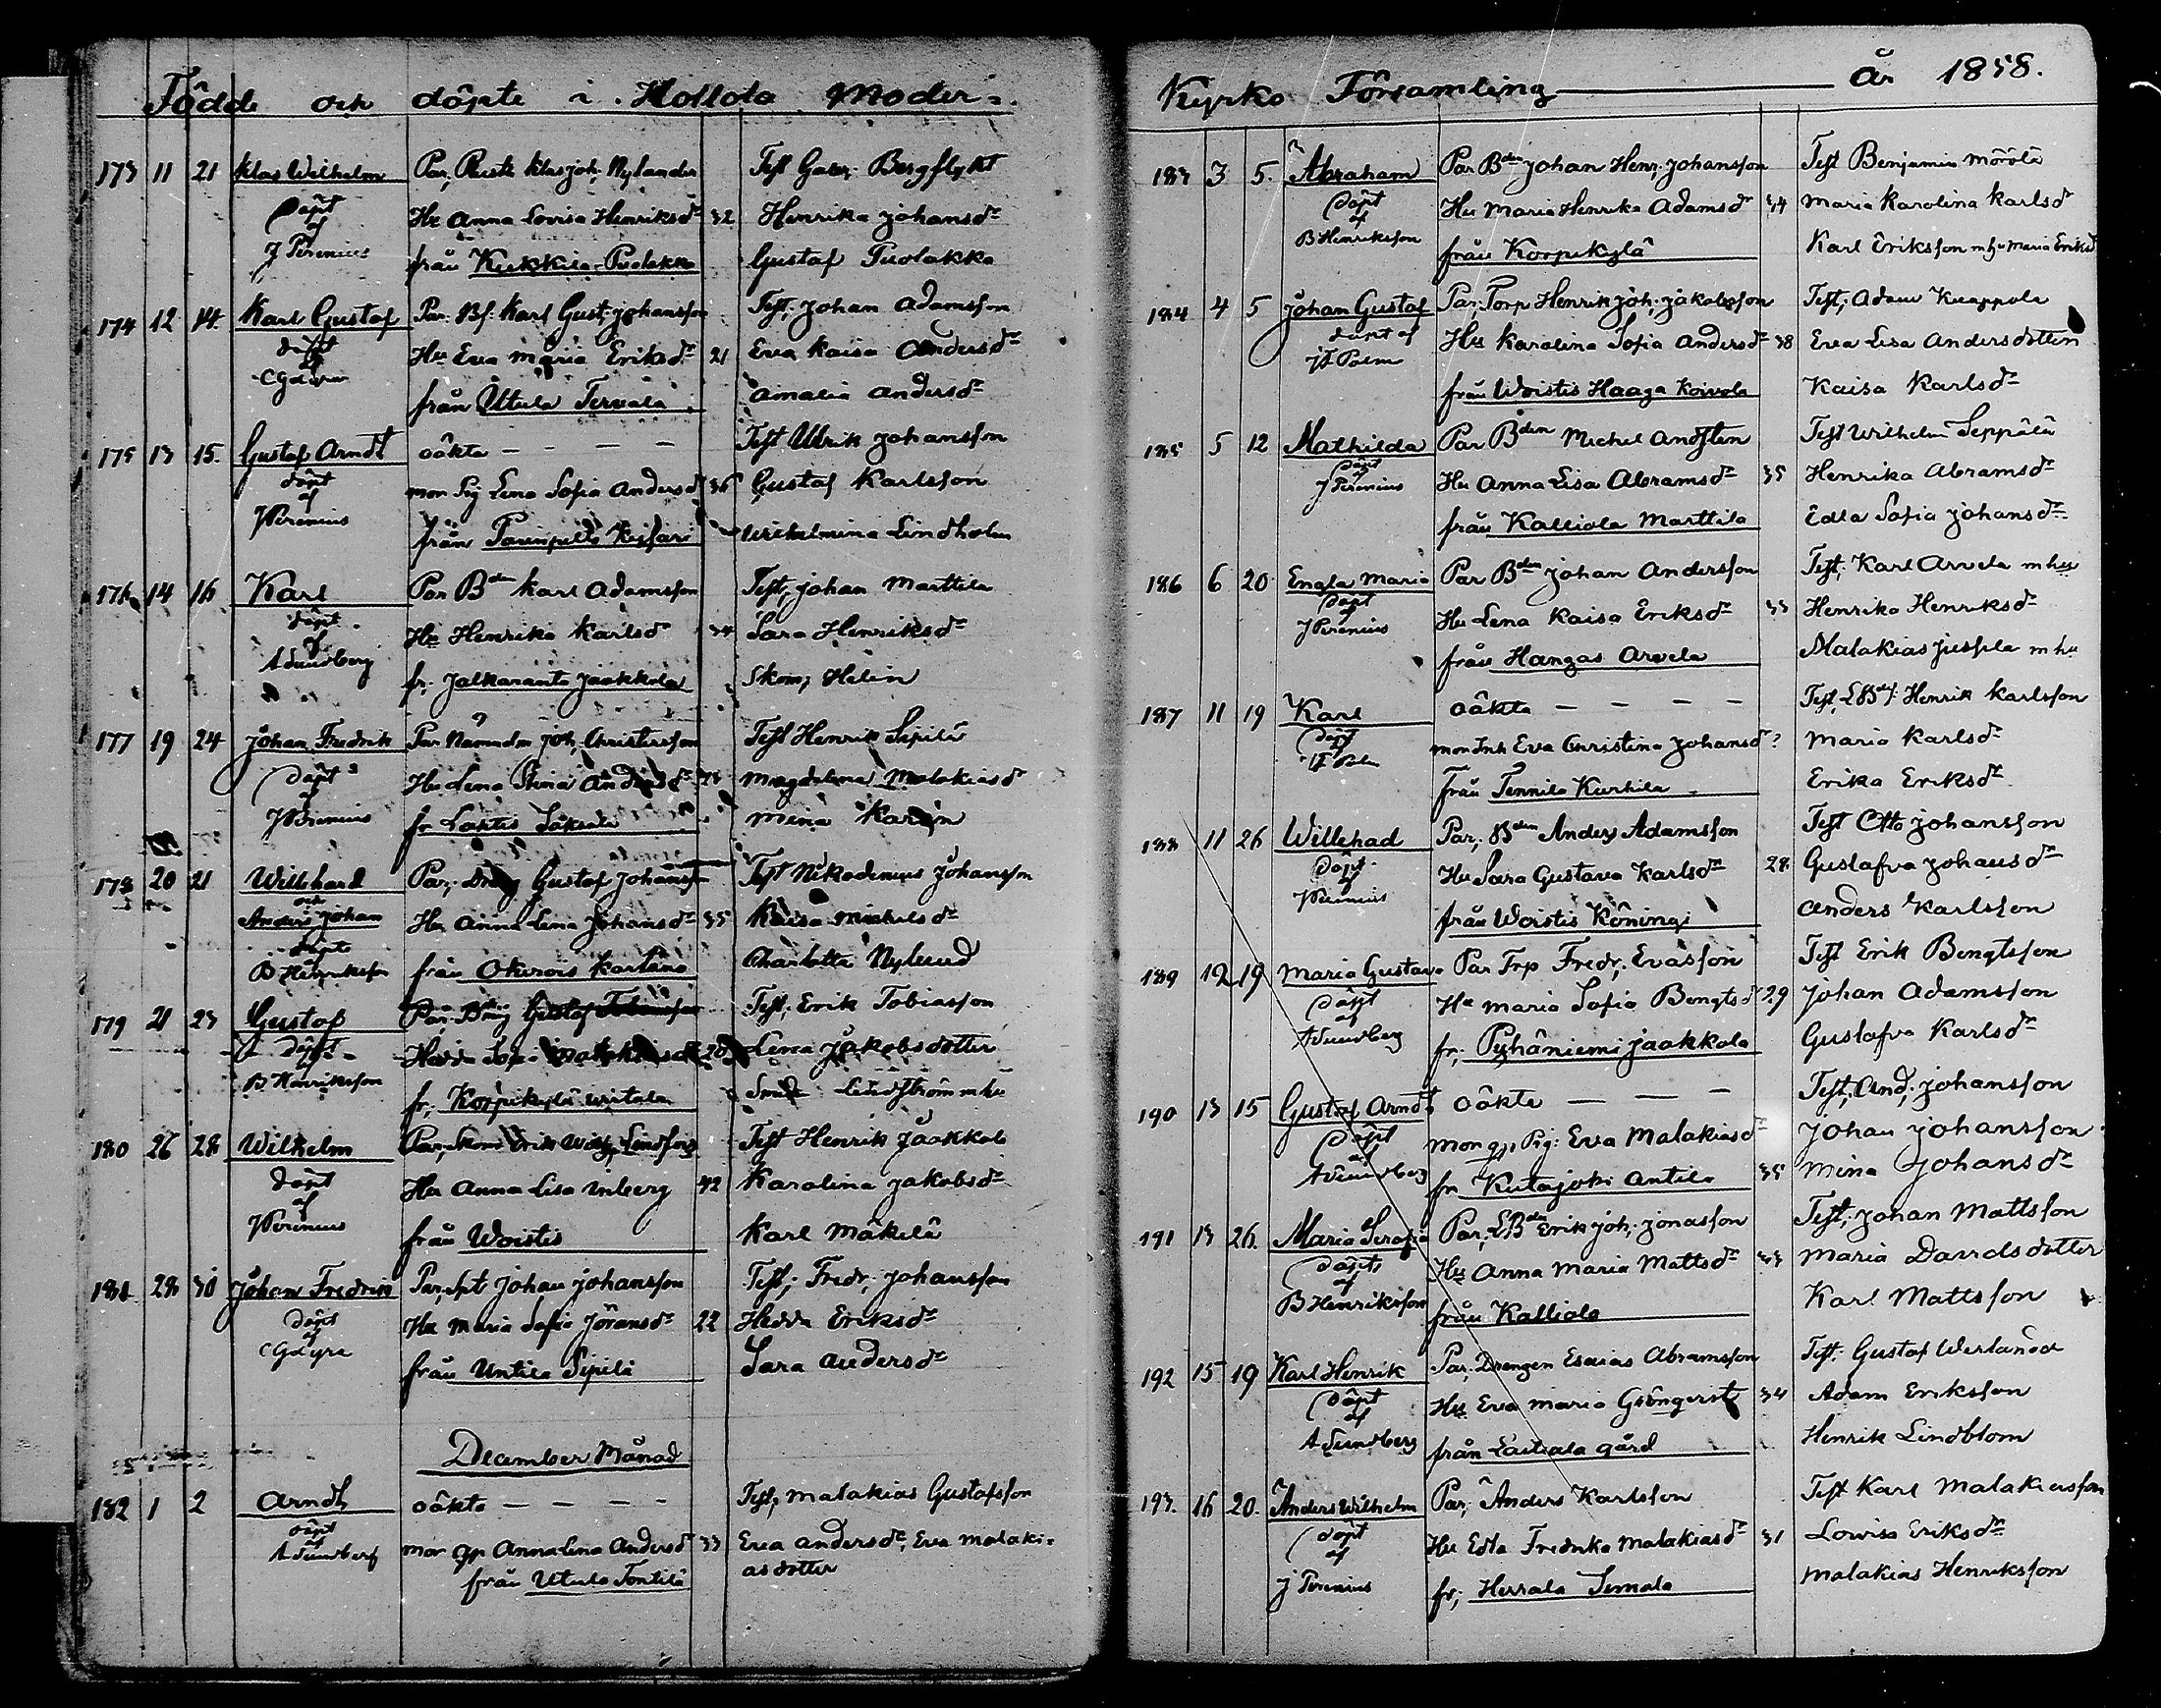 Födde och döpte i Hollola Moder=
173 11 21 Klas Wilhelm Par, Rustk Klas Joh, Nylander Test Bergflykt
Döpt af J Perenius Hu Anna Lovisa Henriksdr 32 Henrika Johansdr
från Kukkila Puolakka Gustaf Puolakka
174 12 14 Karl Gustaf Par. Bf. Karl Gust. Johansson Test, Johan Adamsson
döpt af Hu Eva Maria Eriksdr 21 Eva Kaisa Andersdr
från Utula Tervala Amalia Andersdr
175 13 15. Gustaf Arndt oäkta — — — Test Ulrik Johansson
döpt af J Perenius mor Pig Lena Sofia Andersdr 36 Gustaf Karlsson
från Wilhelmina Lindholm
176 14 16 Karl Par Bden Karl Adamsson Test, Johan Marttila
döpt af A Sundberg Hu Henrika Karlsdr 34 Sara Henriksdr
fr, Jalkaranta Jaakkola Skom, Helin
177 19 24 Johan Fredrik Par Joh, Christersson Test Henrik Sipilä
Döpt af J Perenius Hu Lena Stina Andersdr Magdalena Malakiasdr
fr Lahtis Mina Karin
178 20 21 Willehard Par, Dräng Gustaf Johansson Test Nikodemus Johansson
och Anders Johan Hu Anna Lena Johansdr 35 Kaisa Michelsdr
döpte af B Henriksson från Okerois Karlano Charlotta Nylund
179 21 23 Gustaf Par. Dräng Gustaf Tobiasson Test, Erik Tobiasson
döpt af B Henriksson Hedda Sofia 20 Lena Jakobsdotter
fr, Korpikylä Lindström m hu
180 26 28 Wilhelm Par, Skom Erik Test Henrik Jaakkola
döpt af J Perenius Hu Anna Lisa Inberg 42 Karolina Jakobsdr
från Woistis Karl Mäkelä
181 28 30 Johan Fredrik Par, Spt Johan Johansson Test, Fredr, Johansson
döpt af Hu Maria Sofia Göransdr 22 Hedda Eriksdr
från Untila Sipilä Sara Andersdr
December Månad
182 1 2 Arndt oäkta — — — — Test, Malakias Gustafsson
döpt af A Sundberg mor gp Annalena Andersdr 33 Eva Andersdr, Eva Malaki=
från Utula Tontila asdotter
Kyrko Församling — år 1858.
183 3 5. Abraham Par Bden Johan Henr, Johansson Test Benjamin Mörölä
Döpt af Hu Maria Henrika Adamsdr 34 Maria Karolina Karlsd
B Henriksson från Korpikylä Karl Eriksson m hu Maria Eriksd
184 4 5 Johan Gustaf Par, Torp Henrik Joh, Jakobsson Test, Adam Knappola
döpt af Hu Karolina Sofia Andersdr 38 Eva Lisa Andersdotter
Palm från Woistis Haaga Koivola Kaisa Karlsdr
185 5 12 Mathilda Par Bden Michel Andsten Test Wilhelm Seppälä
Döpt af J Perenius Hu Anna Lisa Abramsdr 35 Henrika Abramsdr
från Kalliola Marttila Edla Sofia Johansdr
186 6 20 Engla Maria Par Bden Johan Andersson Test, Karl Arvela m hu
Döpt af J Perenius Hu Lena Kaisa Eriksdr 33 Henrika Henriksdr
från Hangas Arvela Malakias m hu
187 11 19 Karl oäkta — — — — Test, Henrik Karlsson
Döpt af Palm mor Inh Eva Christina Johansd ? Maria Karlsdr
Från Tennilä Kurhila Erika Eriksdr
188 11 26 Willehad Par, Bden Anders Adamsson Test Otto Johansson
Döpt af J Perenius Hu Sara Gustava Karlsdr 28 Gustafva Johansdr
från Woistis Köningi Anders Karlsson
189 12 19 Maria Gustava Par Trp Fredr, Evasson Test Erik Bengtsson
Döpt af A Sundberg Hu Maria Sofia Bengtsd 29 Johan Adamsson
fr, Pyhäniemi Jaakkola Gustafva Karlsdr
190 13 15 Gustaf Arndt oäkta — — — Test, And, Johansson
Döpt af A Sundberg mor gp Pig: Eva Malakiasdr Johan Johansson
fr Kutajoki Antila 35 Mina Johansdr
191 13 26. Maria Serafia Par, LBden Erik Joh, Jonasson Test, Johan Mattsson
Döpt af B Henriksson Hu Anna Maria Mattsdr 33 Maria Davidsdotter
från Kalliola Karl Mattsson
192 15 19 Karl Henrik Par, Drengen Esaias Abramsson Test. Gustaf Werlander
döpt af Hu Eva Maria Grönqvist 34 Adam Eriksson
A Sundberg från Laitiala gård Henrik Lindblom
193. 16 20. Anders Wilhelm Par, Anders Karlsson Test Karl Malakiasson
döpt af Hu Edla Fredrika Malakiasdr 31 Lovisa Eriksdr
J Perenius fr, Herrala Simola Malakias Henriksson